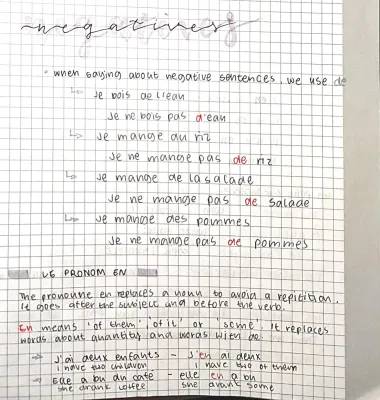 negatives
• when saying about negative sentences, we use de
↳ Je bois de l'eau
Je ne bois pas d'eau
↳ Je mange du riz
Je ne mange pas de riz
↳ Je mange de la salade
Je ne mange pas de salade
↳ Je mange des pommes
Je ne mange pas de pommes
LE PRONOM EN
The pronoune en replaces a noun to avoid a repitition.
It goes after the subject and before the verb.
En means 'of them', 'of it' or 'some'. It replaces
words about quantity and words with de
→ J'ai deux enfants - J'en ai deux
I have two children I have two of them
→ Elle a bu un café - elle en a bu
She drank coffee She drank some